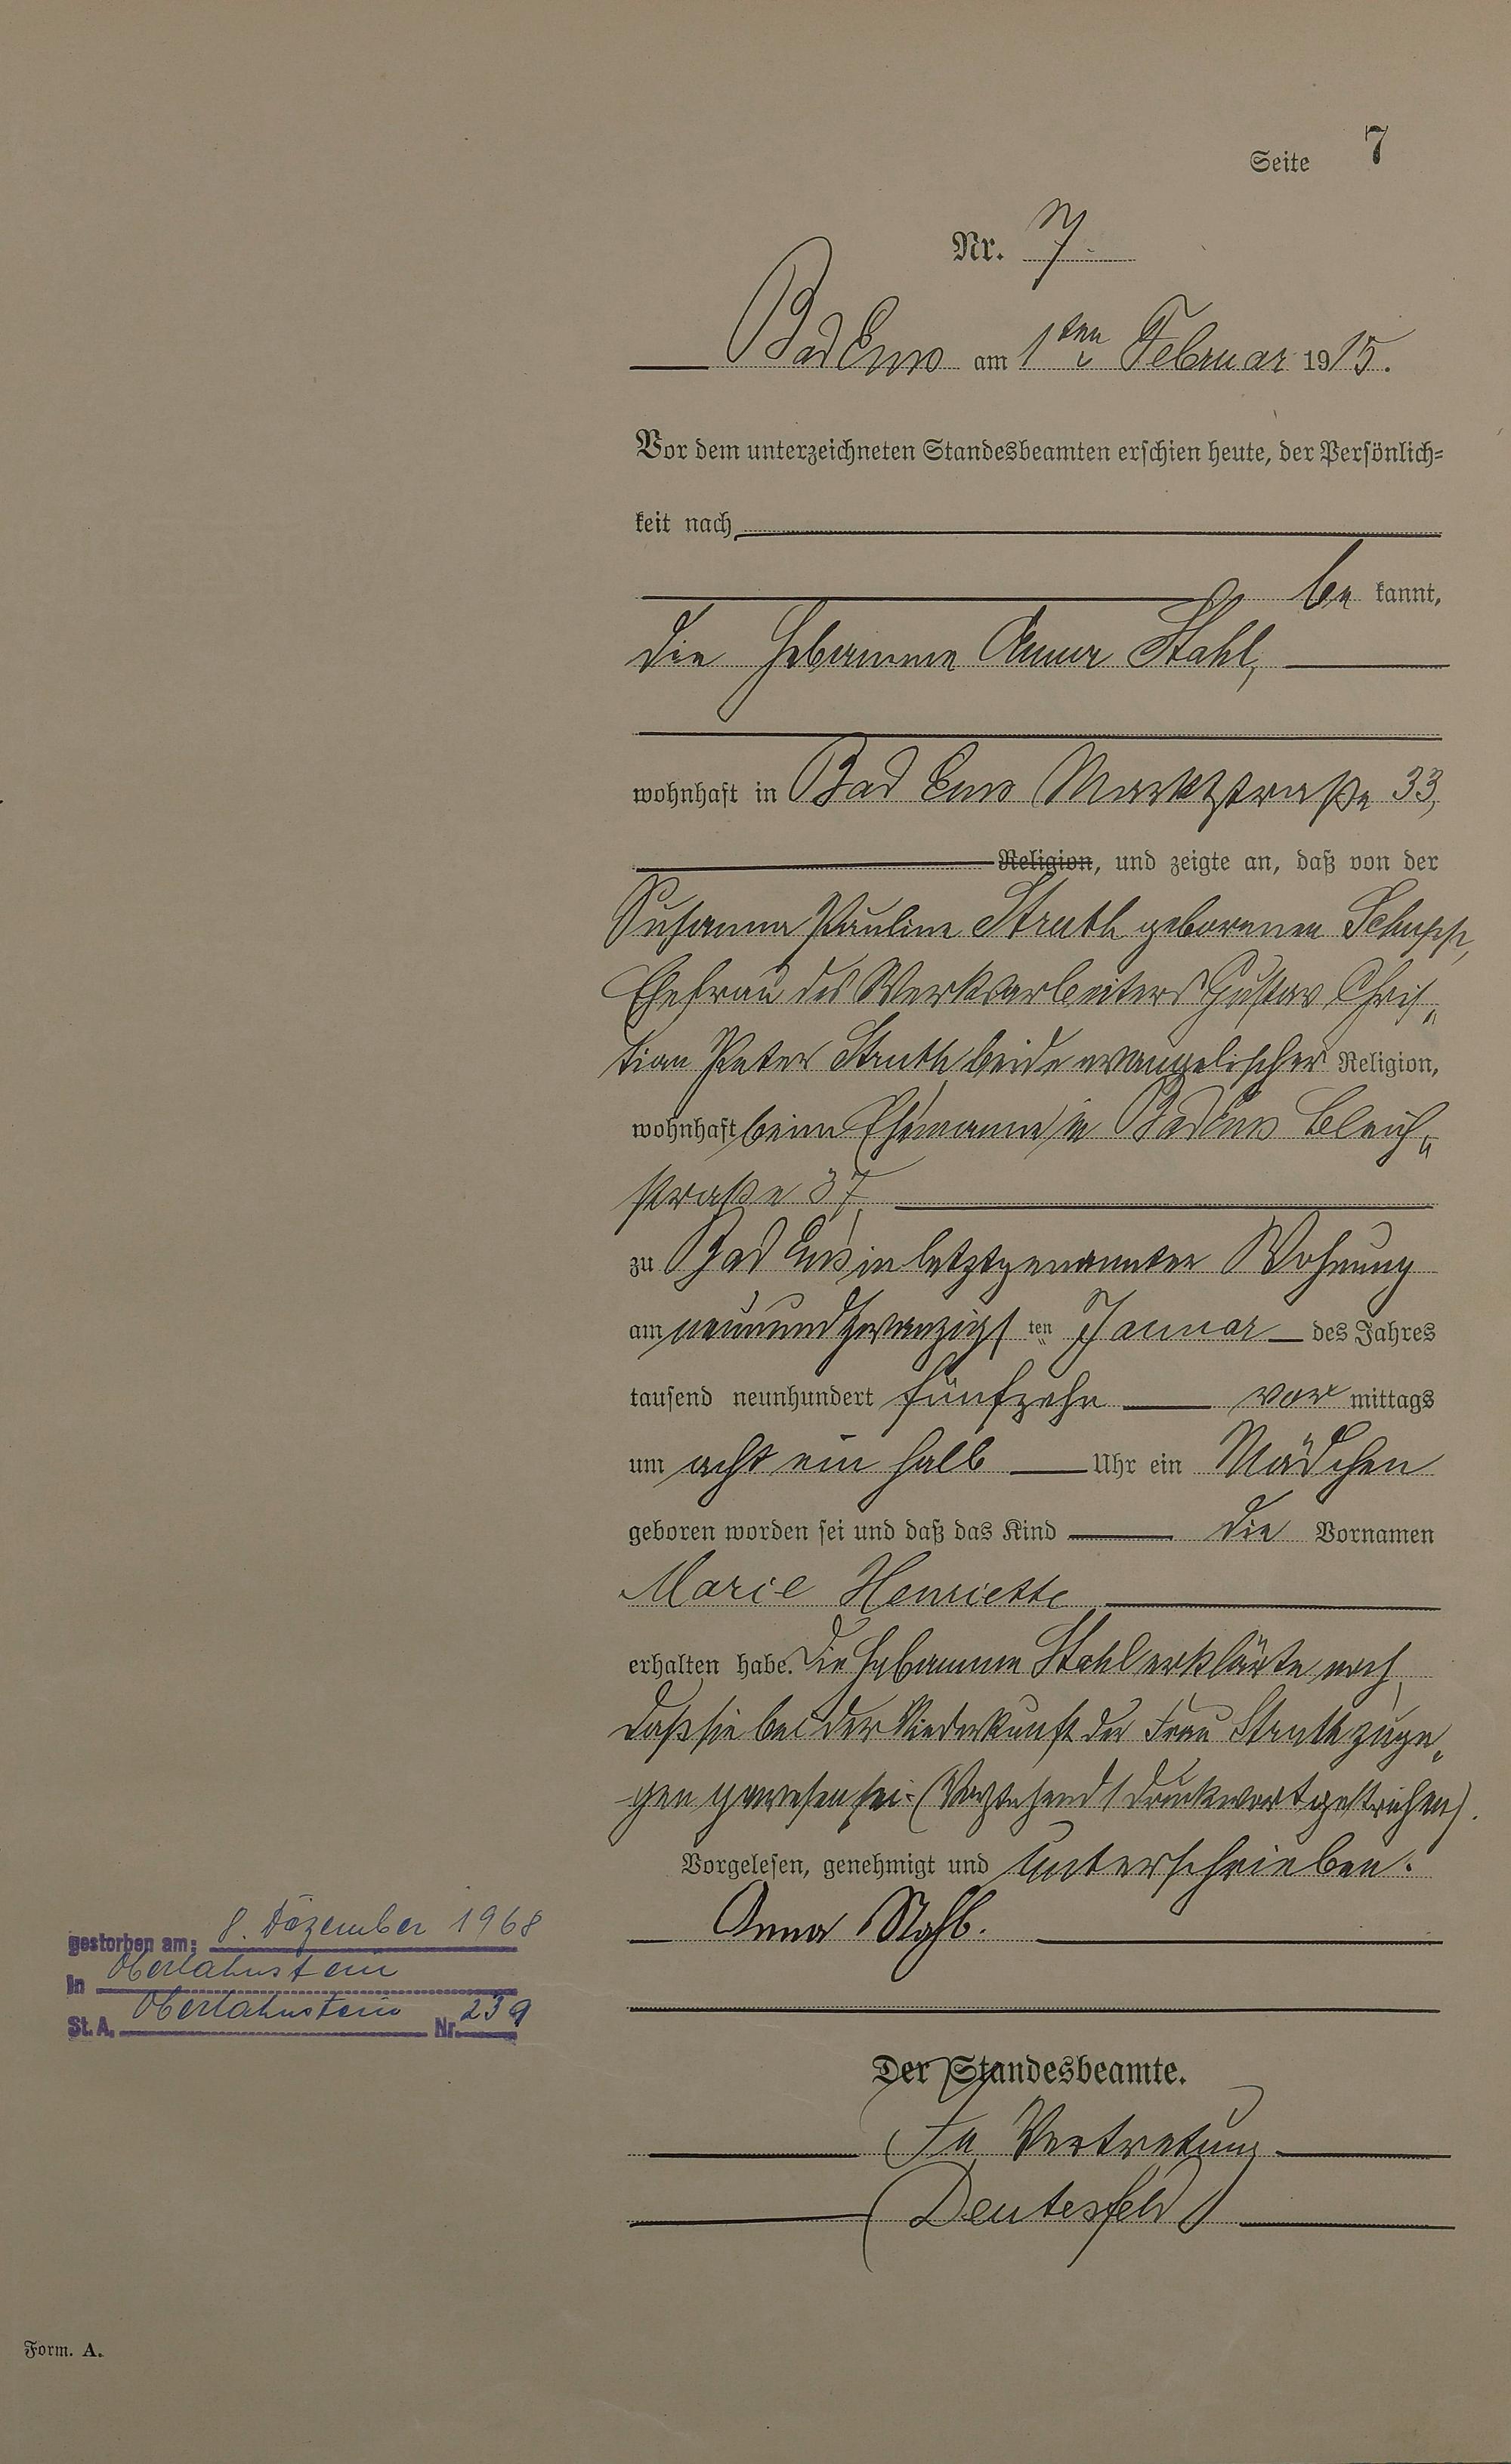 Seite 7
Nr. 7
Bad Ems am 1ten Februar 1915.
Vor dem unterzeichneten Standesbeamten erschien heute, der Persönlich-
keit nach,
be kannt,
die Hebamme Anna Stahl,
wohnhaft in Bad Ems Marktstraße 33,
Religion, und zeigte an, daß von der
Susanna Pauline Struth geborenen Schupp,
Ehefrau des Werksarbeiters Gustav Chris„
tian Peter Struth, beide evangelischer Religion,
wohnhaft beim Ehemanne in Bad Ems Bleich„
straße 37,
zu Bad Ems in letztgenannter Wohnung
am neunundzwanzigs ten Januar des Jahres
tausend neunhundert fünfzehn vor mittags
um acht ein halb Uhr ein Mädchen
geboren worden sei und daß das Kind die Vornamen
Marie Henriette
erhalten habe. Die Hebamme Stahl erklärte noch,
daß sie bei der Niederkunft der Frau Struth zuge„
gen gewesen sei. (Vorstehend 1 Druckwort gestrichen).
Vorgelesen, genehmigt und unterschrieben.
Anna Stahl.
gestorben am: 8. Dezember 1968
in Oberlahnstein
St. A. Oberlahnstein Nr. 239
Der Standesbeamte.
In Vertretung
Deutesfeld
Form. A.